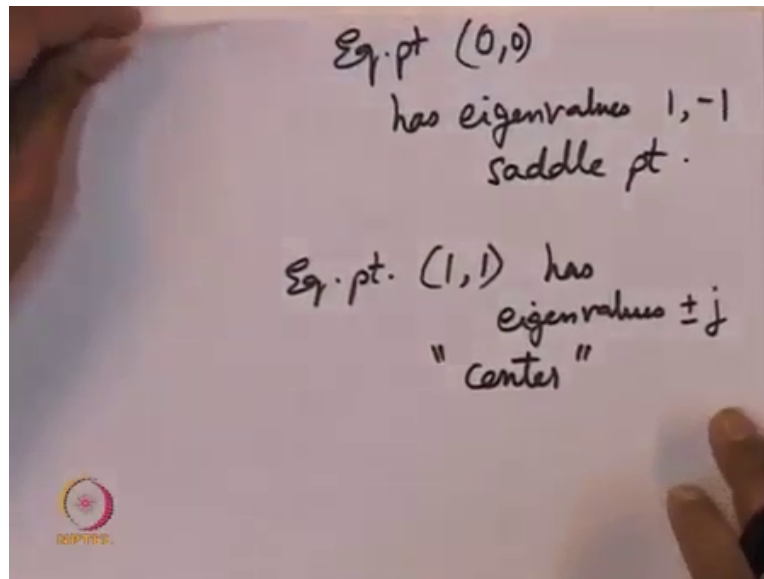 Eq. pt (0,0)
has eigenvalues 1, -1
saddle pt.
Eq. pt. (1,1) has
eigenvalues ± j
"center"
NPTEL